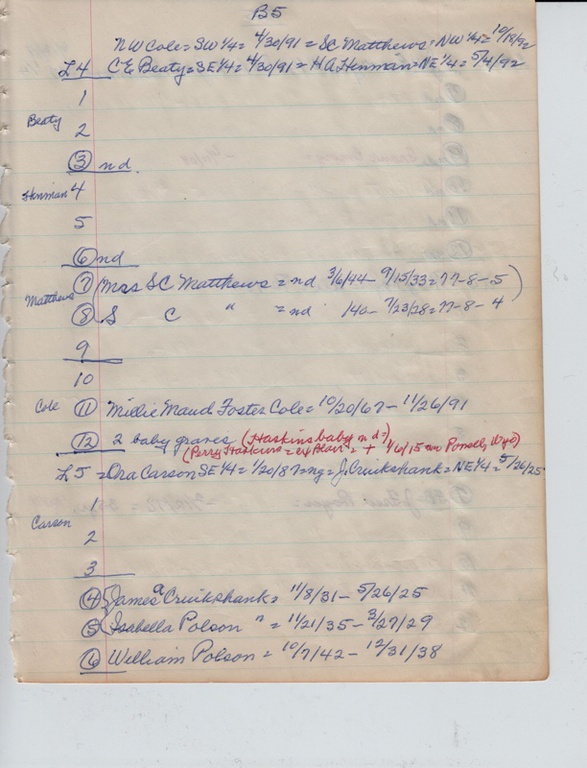 B5
NW Cole = SW 1/4 = 4/30/91 = SC Matthews = NW 1/4 = 10/19/92
L4 CE Beaty = SE 1/4 = 4/30/91 = HA Hinman = NE 1/4 = 5/4/92
1
Beaty
2
3 nd.
Hinman 4
5
6 nd
7 Mrs SC Matthews = nd 3/6/44 - 9/15/33 = 77-8-5
Matthews
8 S C " = nd 140 - 7/23/28 = 77-8-4
9
10
Cole 11 Millie Maud Foster Cole = 10/20/67 - 11/26/91
12 2 baby graves (Haskins baby nd =)
(Perry Haskins = + 1/6/15
L5 = Ora Carson SE 1/4 = 1/20/87 = ng = J Cruikshank = NE 1/4 = 5/26/25
1
Carson
2
3
4 James a Cruikshank = 11/8/31 - 5/26/25
5 Isabella Polson " = 11/21/35 - 3/27/29
6 William Polson = 10/7/42 - 12/31/38